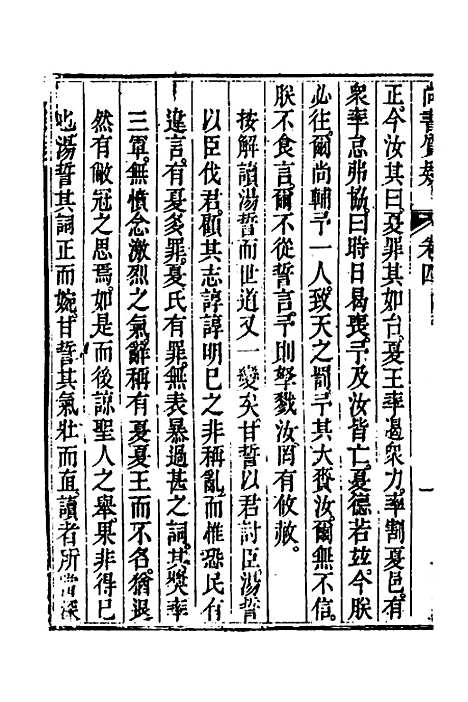 尚書質疑 卷四 一
正今汝其曰夏罪其如台夏王率遏衆力率割夏邑有
衆率怠弗協曰時日曷喪予及汝皆亡夏德若玆今朕
必往爾尚輔予一人致天之罰予其大賚汝爾無不信
朕不食言爾不從誓言予則孥戮汝罔有攸赦
按解讀湯誓而世道又一變矣甘誓以君討臣湯誓
以臣伐君顧其志諄諄明己之非稱亂而惟恐民有
違言有夏多罪夏氏有罪無表暴過甚之詞其奬率
三軍無憤忿激烈之氣辭稱有夏夏王而不名猶退
然有敝冠之思焉如是而後諒聖人之舉果非得已
也湯誓其詞正而婉甘誓其氣壯而直讀者所當深